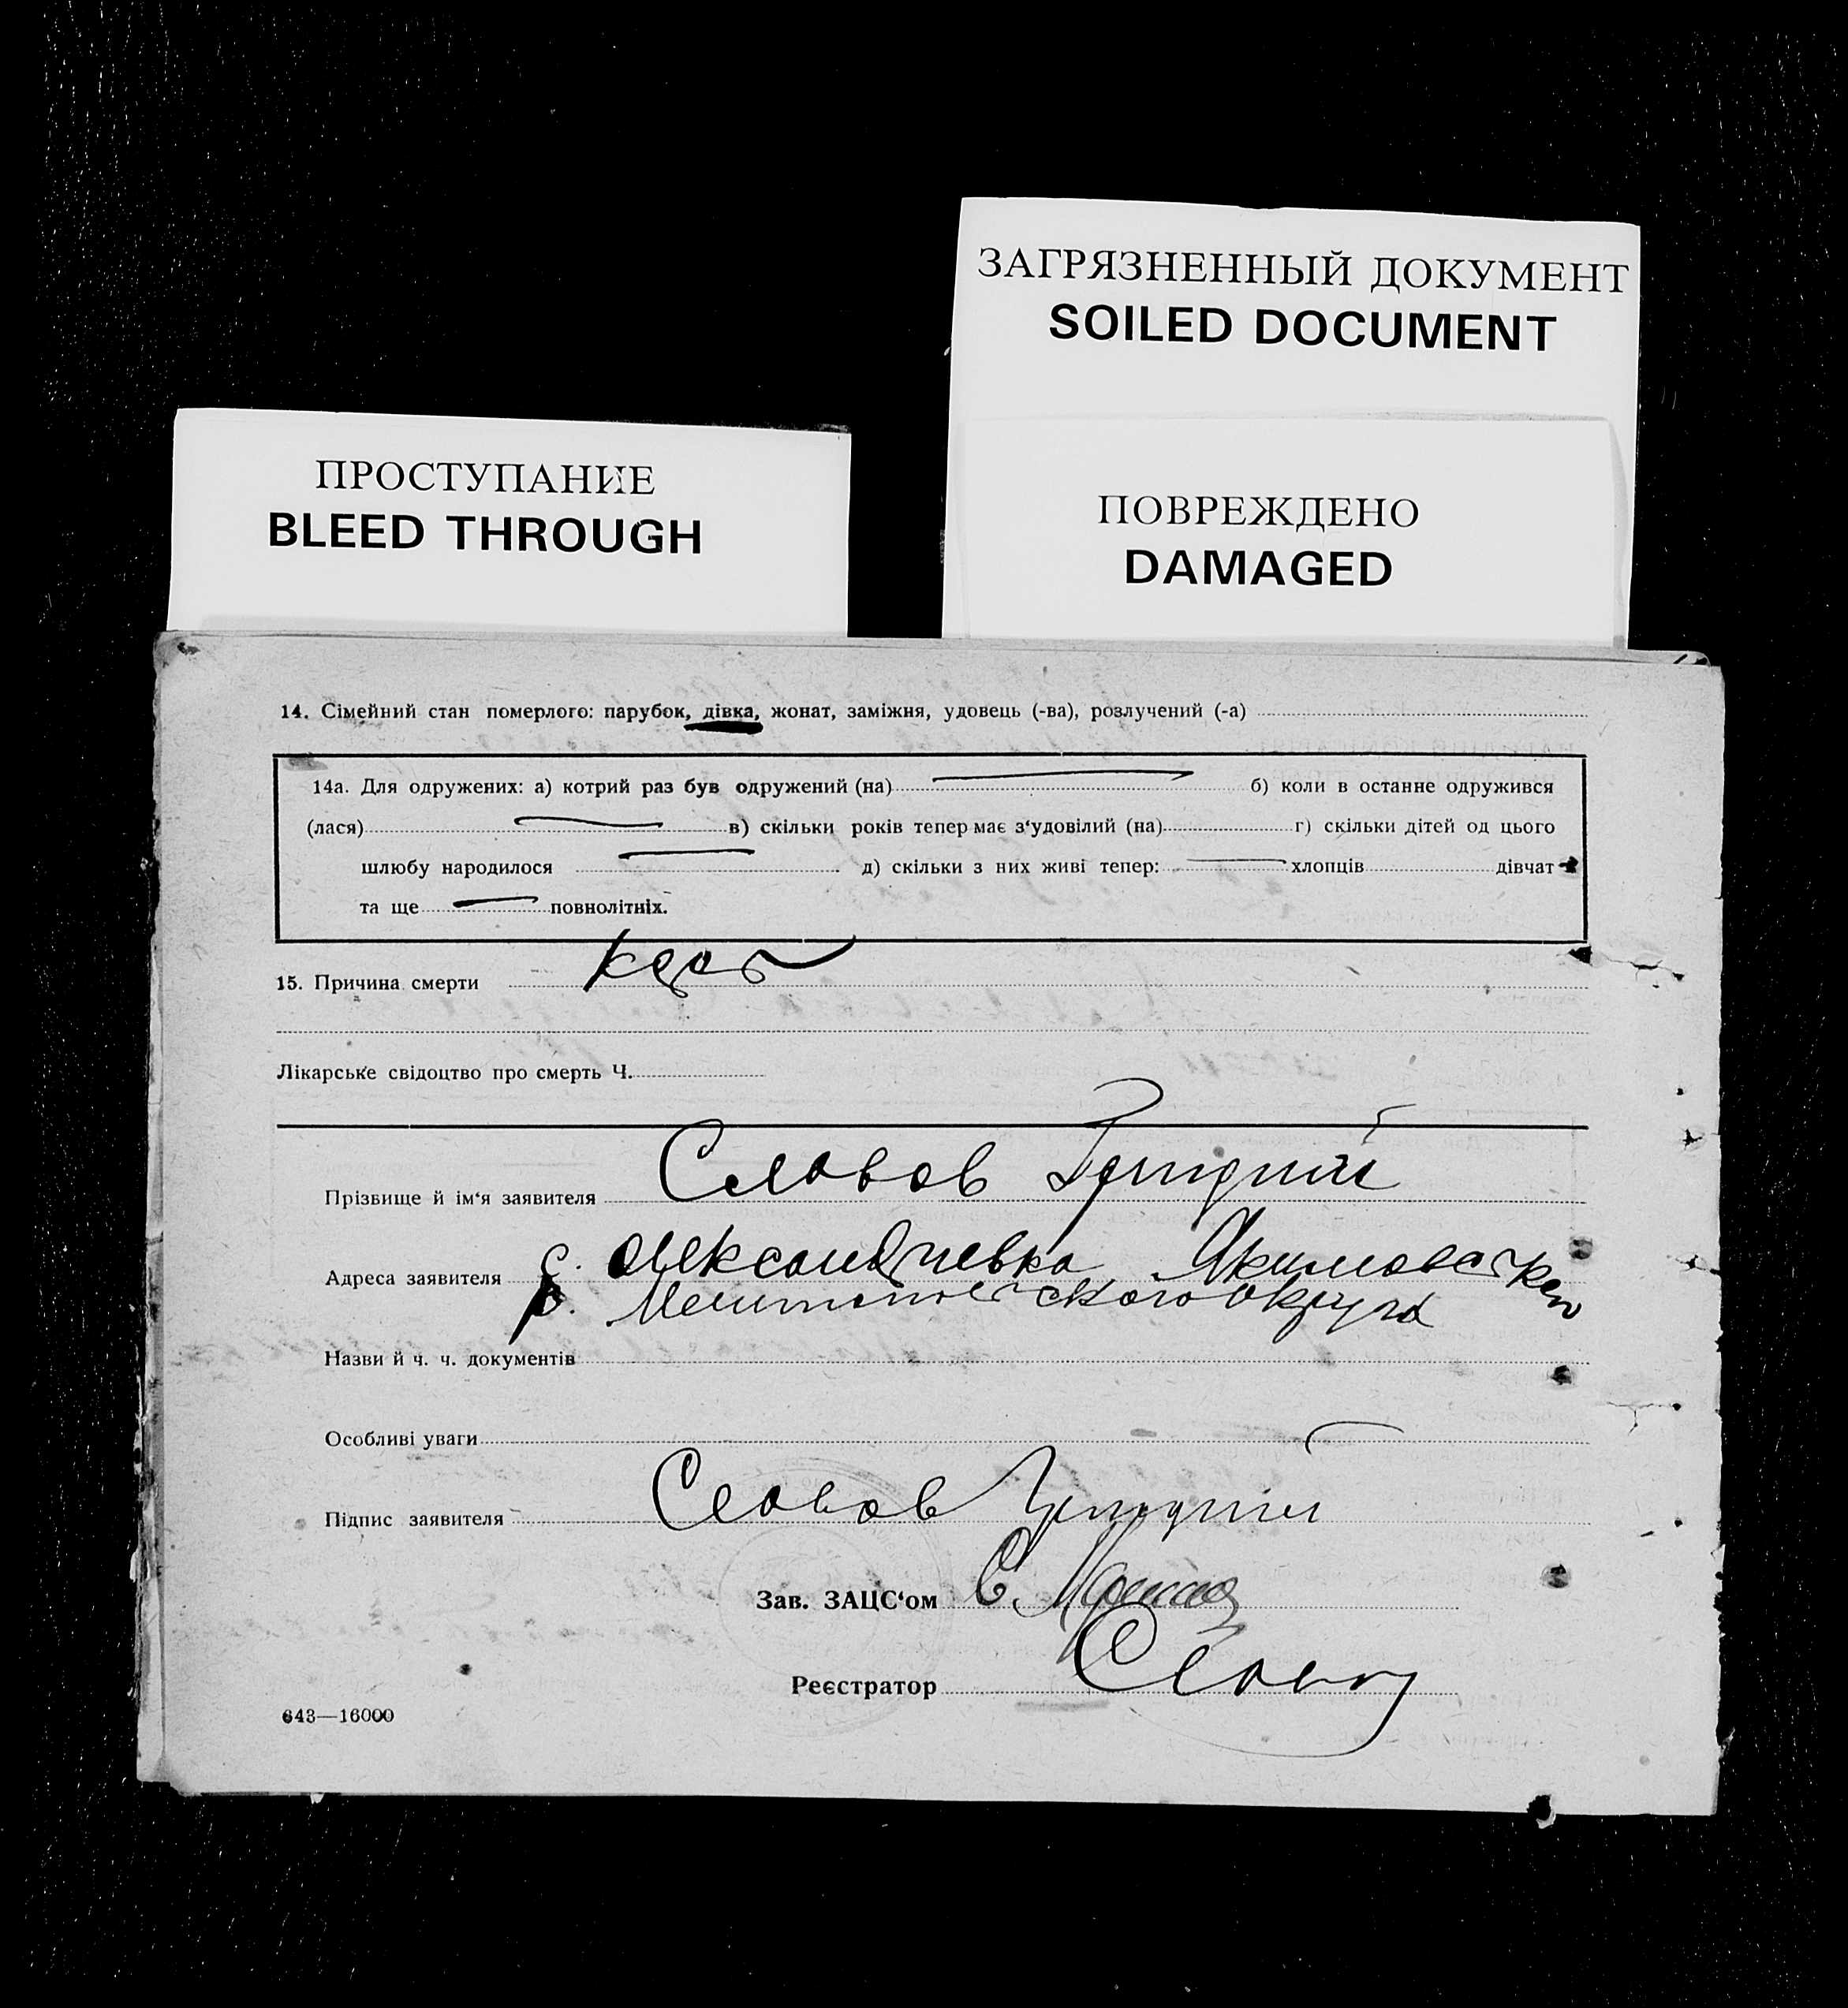 ЗАГРЯЗНЕННЫЙ ДОКУМЕНТ
SOILED DOCUMENT
ПРОСТУПАНИЕ
BLEED THROUGH
ПОВРЕЖДЕНО
DAMAGED
14. Сімейний стан померлого: парубок, дівка, жонат, заміжня, удовець (-ва), розлучений (-а)
14а. Для одружених: а) котрий раз був одружений (на) б) коли в останне одружився
(лася) в) скільки років тепер має з‘удовілий (на) г) скільки дітей од цього
шлюбу народилося д) скільки з них живі тепер: хлопців дівчат
та ще повнолітніх.
15. Причина смерти
Лікарське свідоцтво про смерть Ч.
Прізвище й ім‘я заявителя Словов
Адреса заявителя с. Олександрівка
р. округа
Назви й ч. ч. документів
Особливі уваги
Підпис заявителя Словов
Зав. ЗАЦС‘ом С.
Реєстратор
643—16000